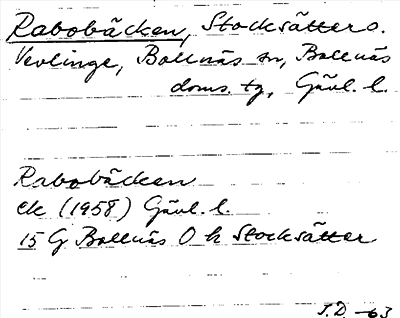 Rabobäcken, Stocksätter o.
Vevlinge, Bollnäs sn, Bollnäs
doms. tg, Gävl. l.
Rabobäcken
ek (1958) Gävl. l.
15 G Bollnäs O h Stocksätter
J.D. -63